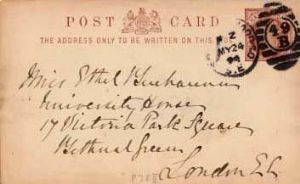 POST CARD
THE ADDRESS ONLY TO BE WRITTEN ON THIS
Z
MY 24
94
S.E.
49
B
Miss Ethel Buchanan
University House
17 Victoria Park Square
Bethnal Green
London E.C